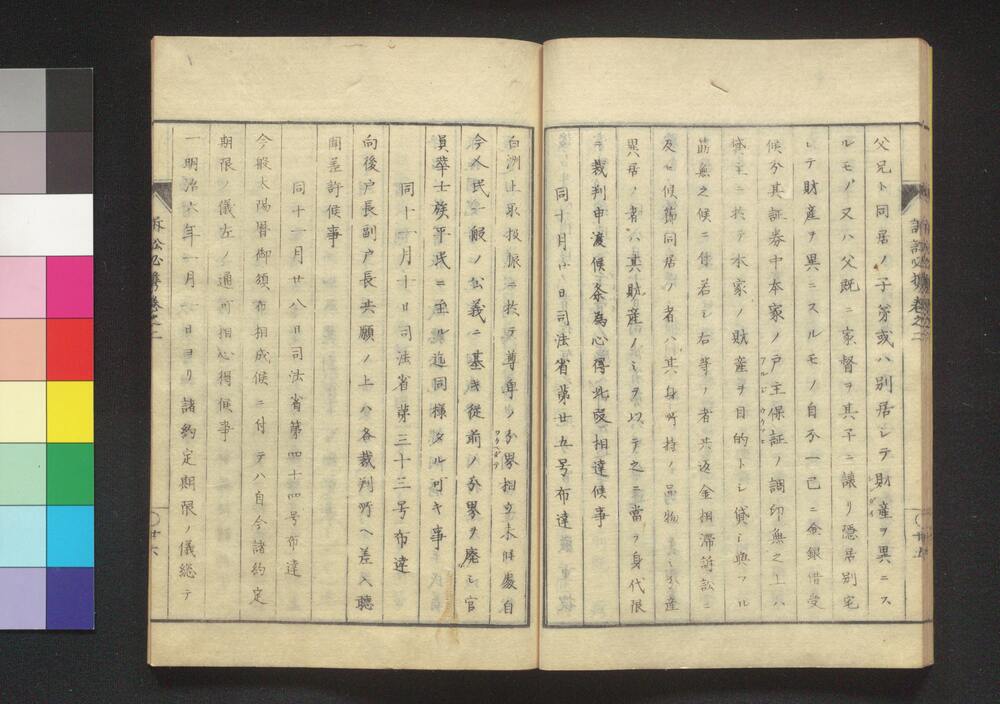 父兄ト同居ノ子弟或ハ別居シテ財産ヲ異ニス
ルモノ又ハ父既ニ家督ヲ其子ニ譲リ隠居別宅
シテ財産ヲ異ニスルモノ自分一己ニ金銀借受
候分其証券中本家ノ戸主保証ノ調印無之上ハ
貸主ニ於テ本家ノ財産ヲ目的トシ貸シ與フル
筋無之候ニ付若シ右等ノ者共返金相滞訴訟ニ
及ヒ候節同居ノ者ハ其身所持ノ品物
異居ノ者ハ其財産ノミヲ以テ之ニ當ツ身代限
テ裁判申渡候条為心得此段相達候事
同十月 日司法省第廿五号布達
白洲上取扱振ニ於テ尊卑ノ分界相立来候處自
今人民一般ノ公義ニ基キ従前ノ分界ヲ廃シ官
員華士族平民ニ至ル迄同様タル可キ事
同十一月十日司法省第三十三号布達
向後戸長副戸長共願ノ上ハ各裁判所ヘ差入聴
聞差許候事
同十一月廿八日司法省第四十四号布達
今般太陽暦御頒布相成候ニ付テハ自今諸約定
期限ノ儀左ノ通可相心得候事
一明治六年一月一日ヨリ諸約定期限ノ儀総テ